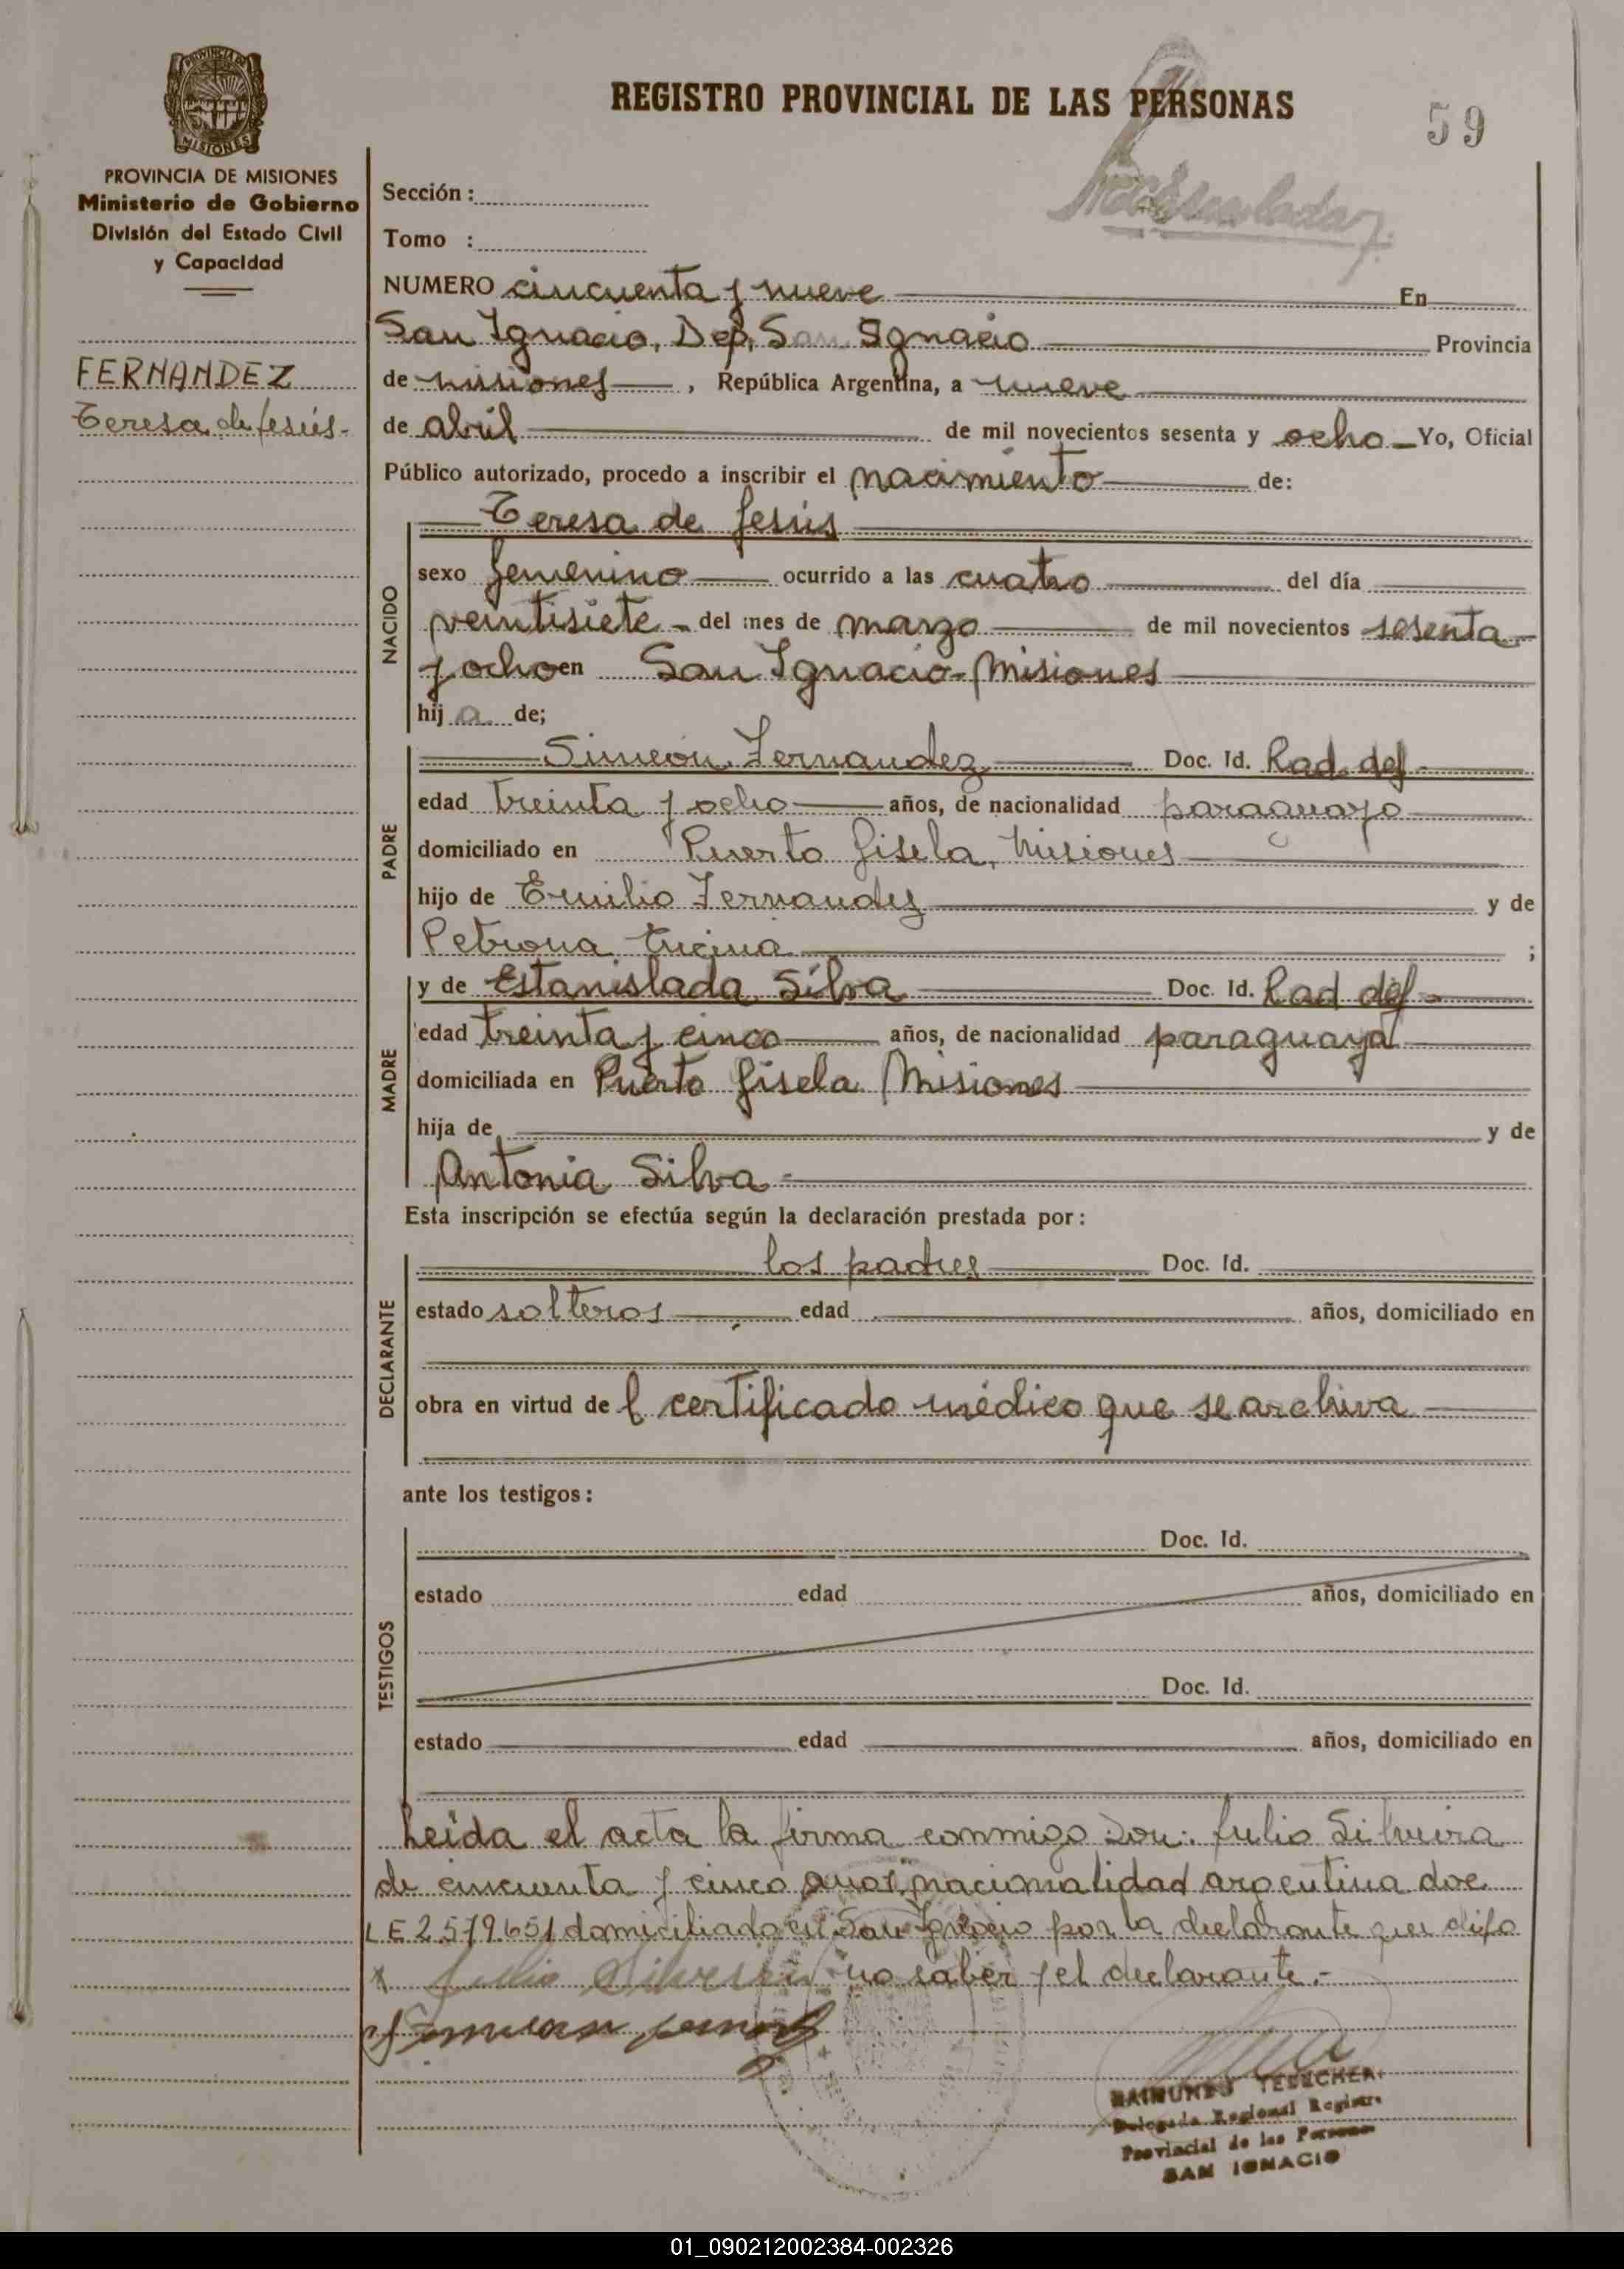 REGISTRO PROVINCIAL DE LAS PERSONAS
59
PROVINCIA DE MISIONES
Ministerio de Gobierno
División del Estado Civil
y Capacidad
FERNANDEZ
Teresa de Jesús.-
Sección :
Tomo :
NUMERO cincuenta y nueve En
San Ignacio, Dep. San Ignacio Provincia
de misiones , República Argentina, a nueve
de abril de mil novecientos sesenta y ocho Yo, Oficial
Público autorizado, procedo a inscribir el nacimiento de:
NACIDO
Teresa de Jesús
sexo femenino ocurrido a las cuatro del día
veintisiete - del mes de marzo de mil novecientos sesenta
y ocho en San Ignacio - Misiones
hij a de;
PADRE
Simeón Fernandez Doc. Id. Rad. def
edad treinta y ocho años, de nacionalidad paraguayo
domiciliado en Puerto Gisela, Misiones
hijo de Emilio Fernandez y de
Petrona ;
MADRE
y de Estanislada Silva Doc. Id. Rad def
edad treinta y cinco años, de nacionalidad paraguaya
domiciliada en Puerto Gisela Misiones
hija de y de
Antonia Silva
Esta inscripción se efectúa según la declaración prestada por:
DECLARANTE
los padres Doc. Id.
estado solteros edad años, domiciliado en
obra en virtud de l certificado médico que se archiva
ante los testigos:
TESTIGOS
Doc. Id.
estado edad años, domiciliado en
Doc. Id.
estado edad años, domiciliado en
Leída el acta la firma conmigo Don: Julio Silveira
de cincuenta y cinco años, nacionalidad argentina doc
LE 2.579.651 domiciliado en San Ignacio por la declarante que dijo
no saber y el declarante.-
Delegado Regional Registro
Provincial de las Personas
SAN IGNACIO
01_090212002384-002326